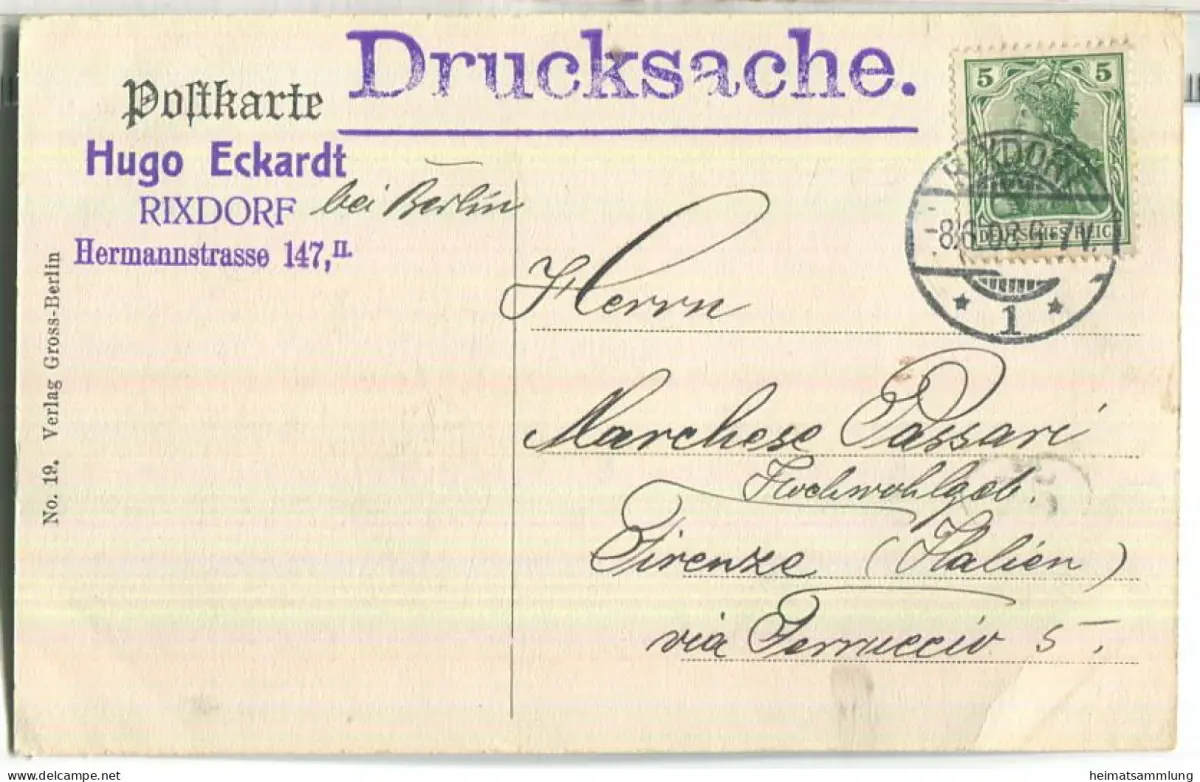 Drucksache.
Postkarte
Hugo Eckardt
RIXDORF bei Berlin
Hermannstrasse 147, II.
No. 19. Verlag Gross-Berlin
5 5
DEUTSCHES REICH
RIXDORF
1
Herrn
Marchese Passari
Hochwohlgeb.
Firenze (Italien)
via Ferruccio 5.
heimatsammlung